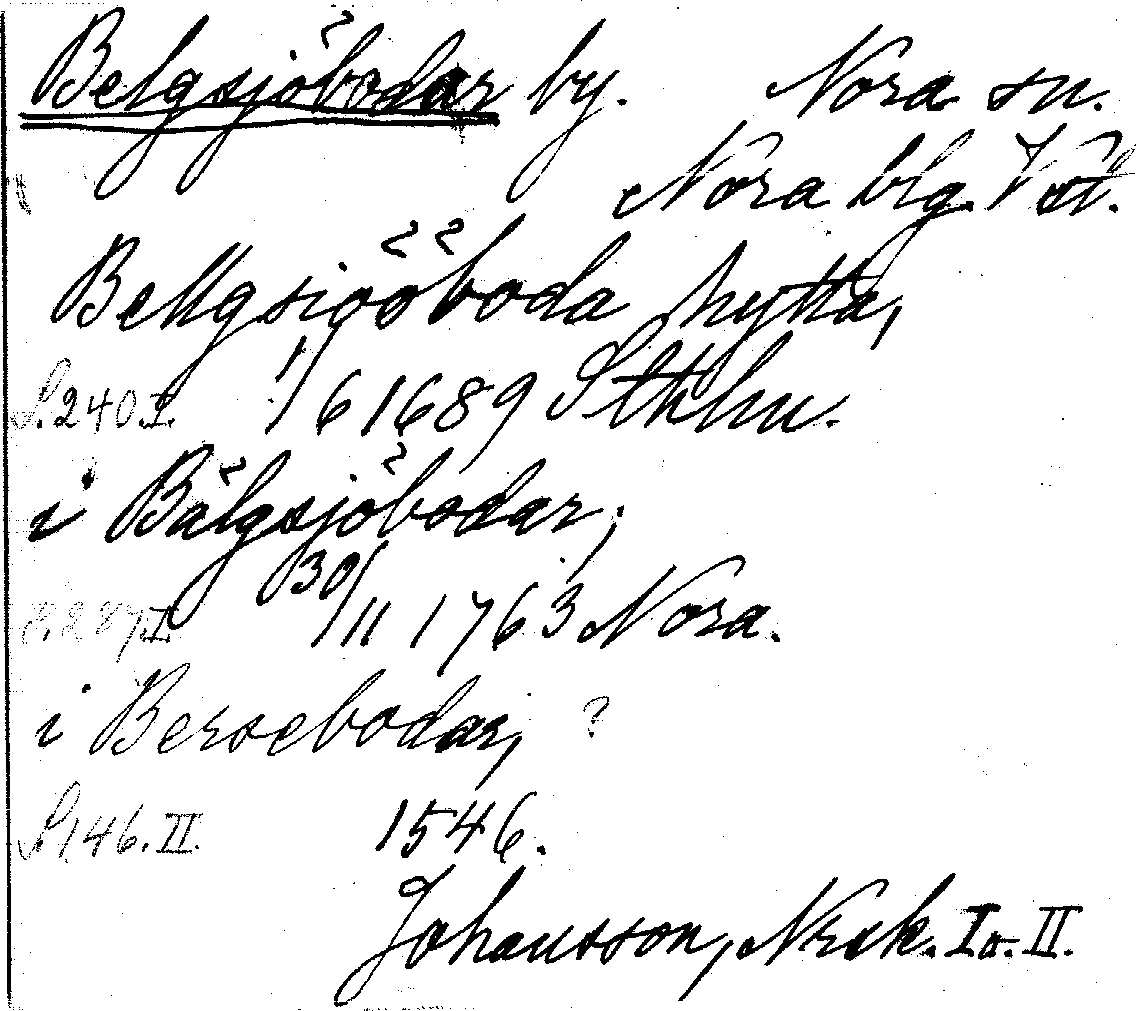 Belgsjöbodar by. Nora sn.
Nora blg. Vstl.
Bellgsiööboda hytta,
S. 240.I. 1/6 1689 Stkhm.
i Bälgsjöbodar,
S. 287.I. 30/11 1763 Nora.
i Bersebodar, ?
S. 146. II. 1546.
Johansson, Nrsk. I o. II.